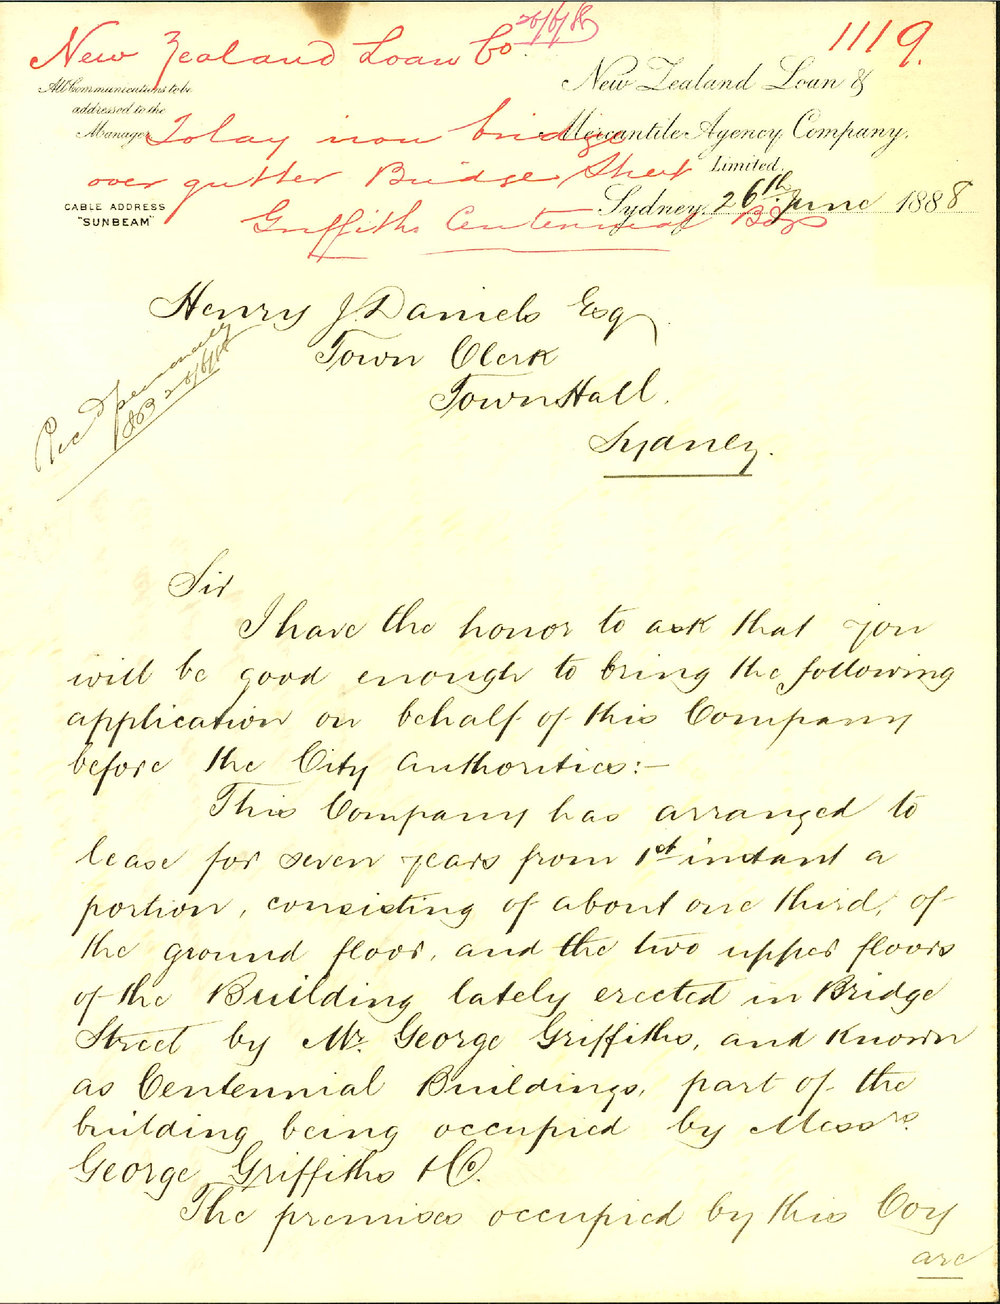 26/6/88
1119.
New Zealand Loan Co.
To lay iron bridge
over gutter Bridge Street
Griffiths Centennial Bdgs
All Communications to be
addressed to the
Manager
CABLE ADDRESS
"SUNBEAM"
New Zealand Loan &
Mercantile Agency Company,
Limited.
Sydney, 26th June 1888
Henry J. Daniels Esq
Town Clerk
Town Hall.
Sydney.
Rec'd personally
26/6/88
Sir
I have the honor to ask that you
will be good enough to bring the following
application on behalf of this Company
before the City Authorities:—
This Company has arranged to
lease for seven years from 1st instant a
portion, consisting of about one third, of
the ground floor, and the two upper floors
of the Building lately erected in Bridge
Street by Mr. George Griffiths, and known
as Centennial Buildings, part of the
building being occupied by Messrs.
George Griffiths & Co.
The premises occupied by this Coy
are